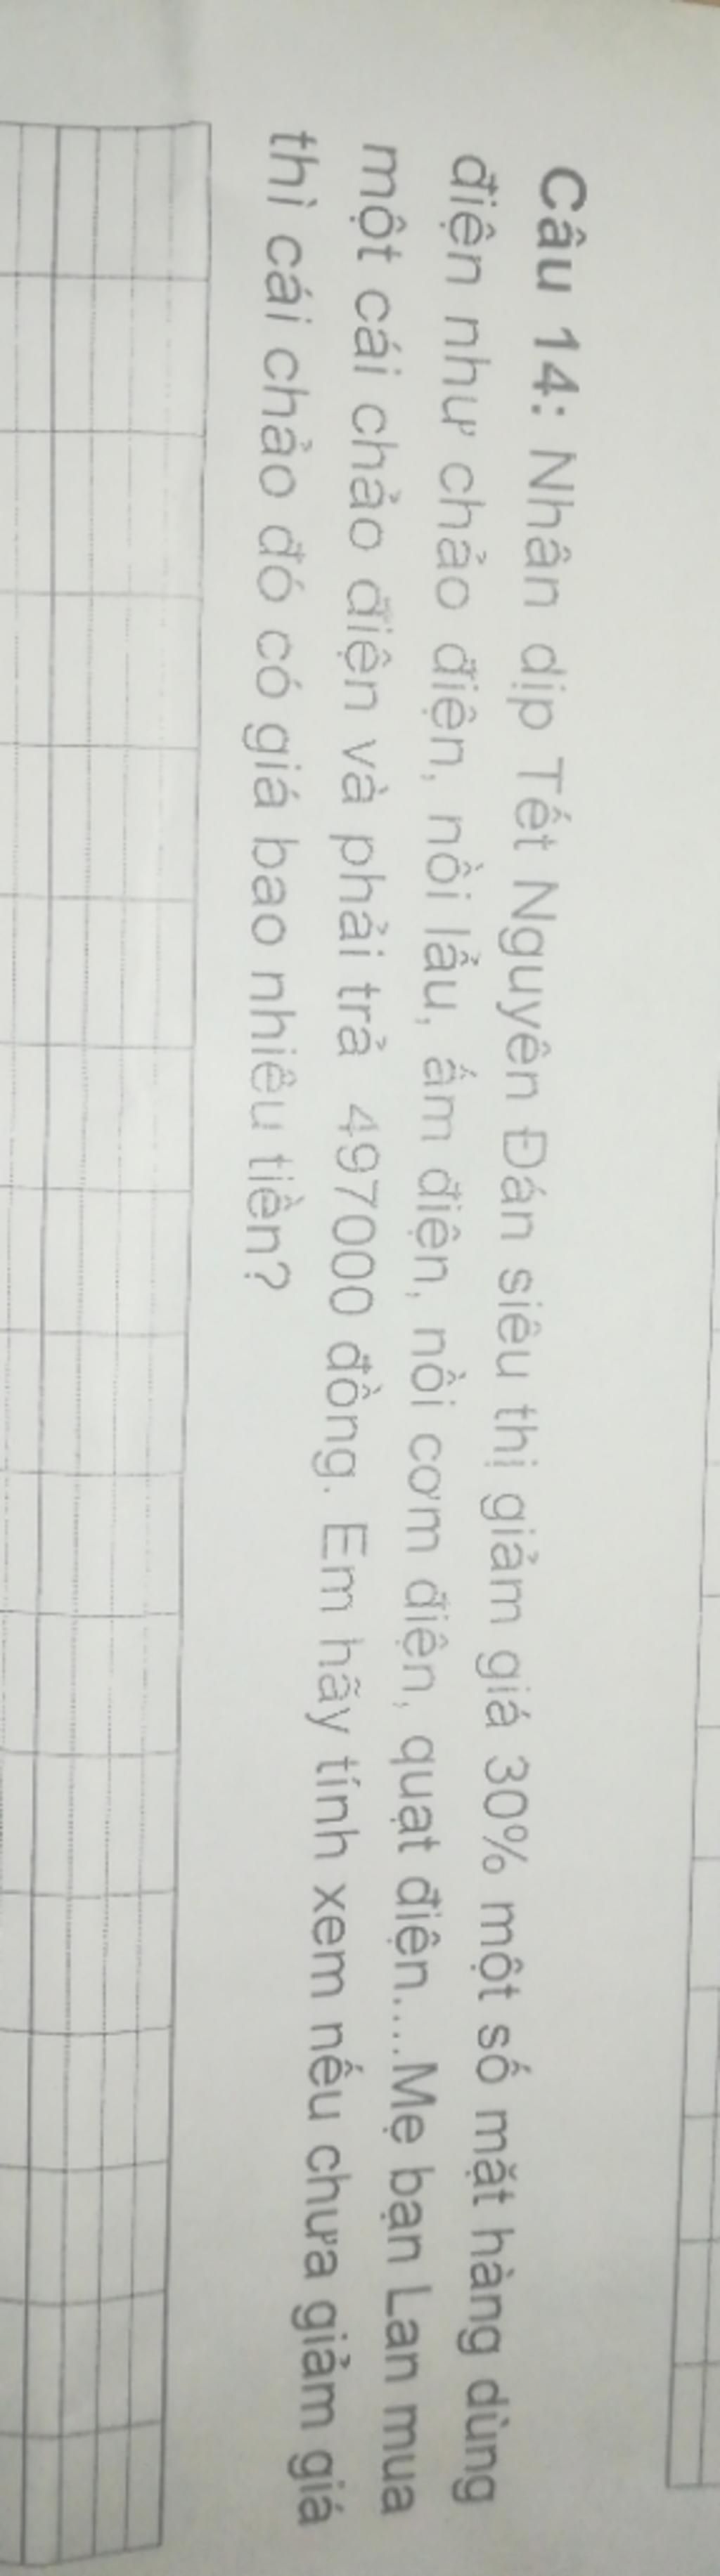 Câu 14: Nhân dịp Tết Nguyên Đán siêu thị giảm giá 30% một số mặt hàng dùng
điện như chảo điện, nồi lẩu, ấm điện, nồi cơm điện, quạt điện....Mẹ bạn Lan mua
một cái chảo điện và phải trả 497000 đồng. Em hãy tính xem nếu chưa giảm giá
thì cái chảo đó có giá bao nhiêu tiền?